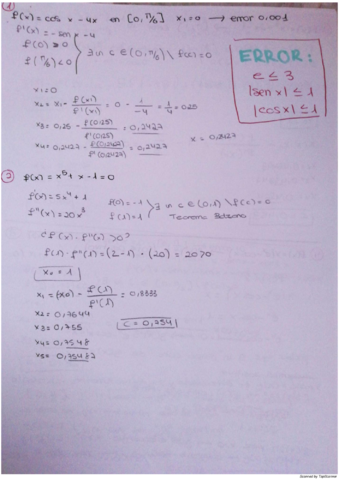 ①
f(x) = cos x - 4x en [0, π/6] x₁ = 0 → error 0,001
f'(x) = -sen x - 4
f(0) > 0
f(π/6) < 0 } ∃ un c ∈ (0, π/6) \ f(c) = 0
ERROR:
e ≤ 3
|sen x| ≤ 1
|cos x| ≤ 1
x₁ = 0
x₂ = x₁ - f(x₁)/f'(x₁) = 0 - 1/-4 = 1/4 = 0,25
x₃ = 0,25 - f(0,25)/f'(0,25) = 0,2427
x₄ = 0,2427 - f(0,2427)/f'(0,2427) = 0,2427
x = 0,2427
② f(x) = x⁵ + x - 1 = 0
f'(x) = 5x⁴ + 1
f''(x) = 20x³
f(0) = -1
f(1) = 1 } ∃ un c ∈ (0,1) \ f(c) = 0
Teorema Bolzano
¿f(x) · f''(x) > 0?
f(1) · f''(1) = (2-1) · (20) = 20 > 0
x₀ = 1
x₁ = (x₀) - f(1)/f'(1) = 0,8333
x₂ = 0,7644
x₃ = 0,755
c = 0,754
x₄ = 0,7548
x₅ = 0,75487
Scanned by TapScanner